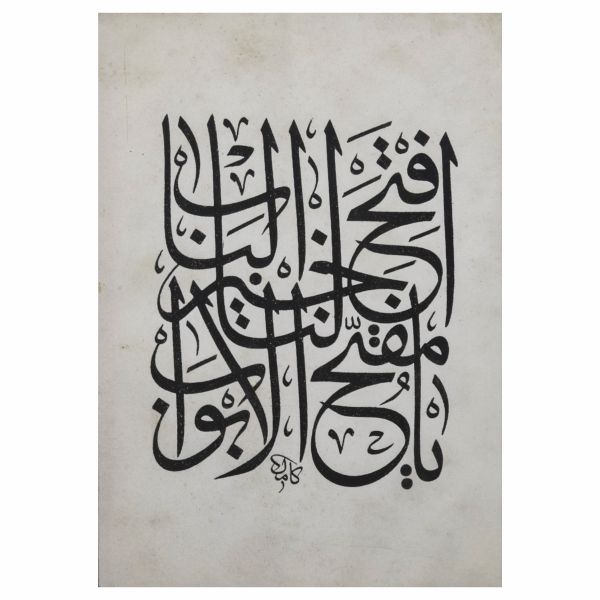 يا مفتح الابواب
افتح لنا خير الباب
كامل